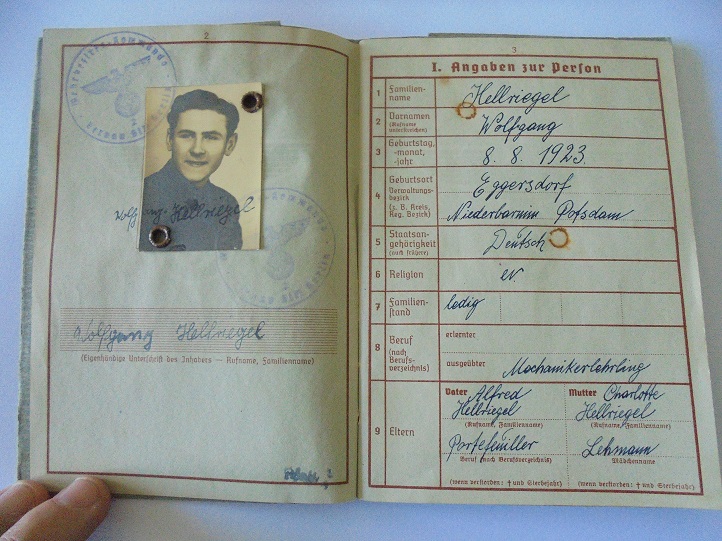 2
Wolfgang Hellriegel
Wolfgang Hellriegel
(Eigenhändige Unterschrift des Inhabers — Rufname, Familienname)
3
I. Angaben zur Person
1 Familien-
name
Hellriegel
2 Vornamen
(Rufname
unterstreichen)
Wolfgang
3 Geburtstag,
-monat,
-jahr
8. 8. 1923.
4 Geburtsort
Verwaltungs-
bezirk
(z. B. Kreis,
Reg. Bezirk)
Eggersdorf
Niederbarnim Potsdam
5 Staatsan-
gehörigkeit
(auch frühere)
Deutsch
6 Religion
ev.
7 Familien-
stand
ledig
8 Beruf
(nach
Berufs-
verzeichnis)
erlernter
ausgeübter
Mechanikerlehrling
9 Eltern
Vater Alfred
Hellriegel
(Rufname, Familienname)
Portefeuiller
Beruf (nach Berufsverzeichnis)
(wenn verstorben: † und Sterbejahr)
Mutter Charlotte
Hellriegel
(Rufname, Familienname)
Lehmann
Mädchenname
(wenn verstorben: † und Sterbejahr)